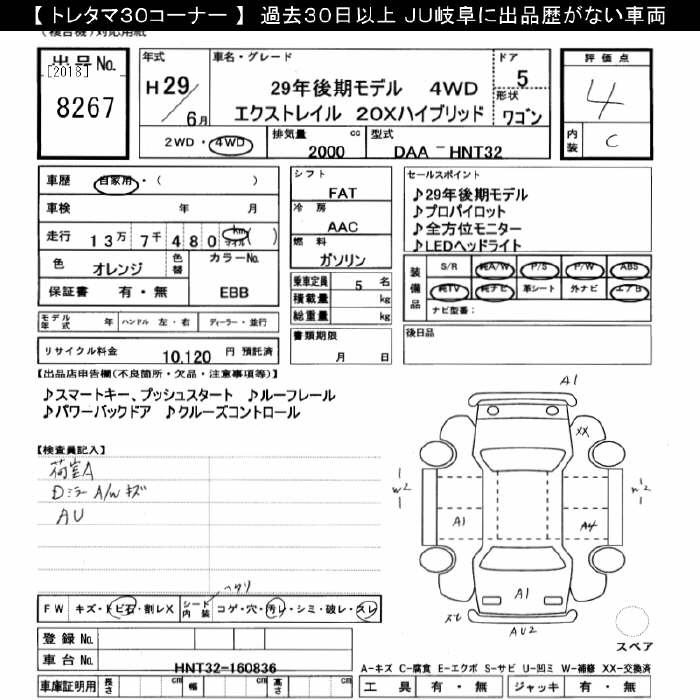 【 トレタマ30コーナー 】 過去30日以上 JU岐阜に出品歴がない車両
出品No.
[2018]
8267
年式
H29/6月
車名・グレード
29年後期モデル 4WD
エクストレイル 20Xハイブリッド
ドア
5
形状
ワゴン
評価点
4
内装
C
2WD・4WD
排気量 cc
2000
型式
DAA-HNT32
車歴 自家用・( )
車検 年 月
走行 13万7千480 km マイル ( )
色 オレンジ 色替
カラーNo.
EBB
保証書 有・無
シフト
FAT
冷房
AAC
燃料
ガソリン
乗車定員 5 名
積載量 kg
総重量 kg
書類期限
月 日
セールスポイント
♪29年後期モデル
♪プロパイロット
♪全方位モニター
♪LEDヘッドライト
装備品
S/R 純A/W P/S P/W ABS
純TV 純ナビ 革シート 外ナビ エアB
ナビ型番:
後日品
モデル年式 年 ハンドル 左・右 ディーラー・並行
リサイクル料金 10,120 円 預託済
【出品店申告欄(不良箇所・欠品・注意事項等)】
♪スマートキー、プッシュスタート ♪ルーフレール
♪パワーバックドア ♪クルーズコントロール
【検査員記入】
荷室A
Dミラー A/W キズ
AU
A1
XX
W2
A1
A4
A1
AU2
スペア
FW キズ・トビ石・割レX シート内装 コゲ・穴・汚レ・シミ・破レ・スレ
登録No.
車台No. HNT32-160836
A-キズ C-腐食 E-エクボ S-サビ U-凹ミ W-補修 XX-交換済
車庫証明用 長さ cm 幅 cm 高さ cm
工具 有・無 ジャッキ 有・無